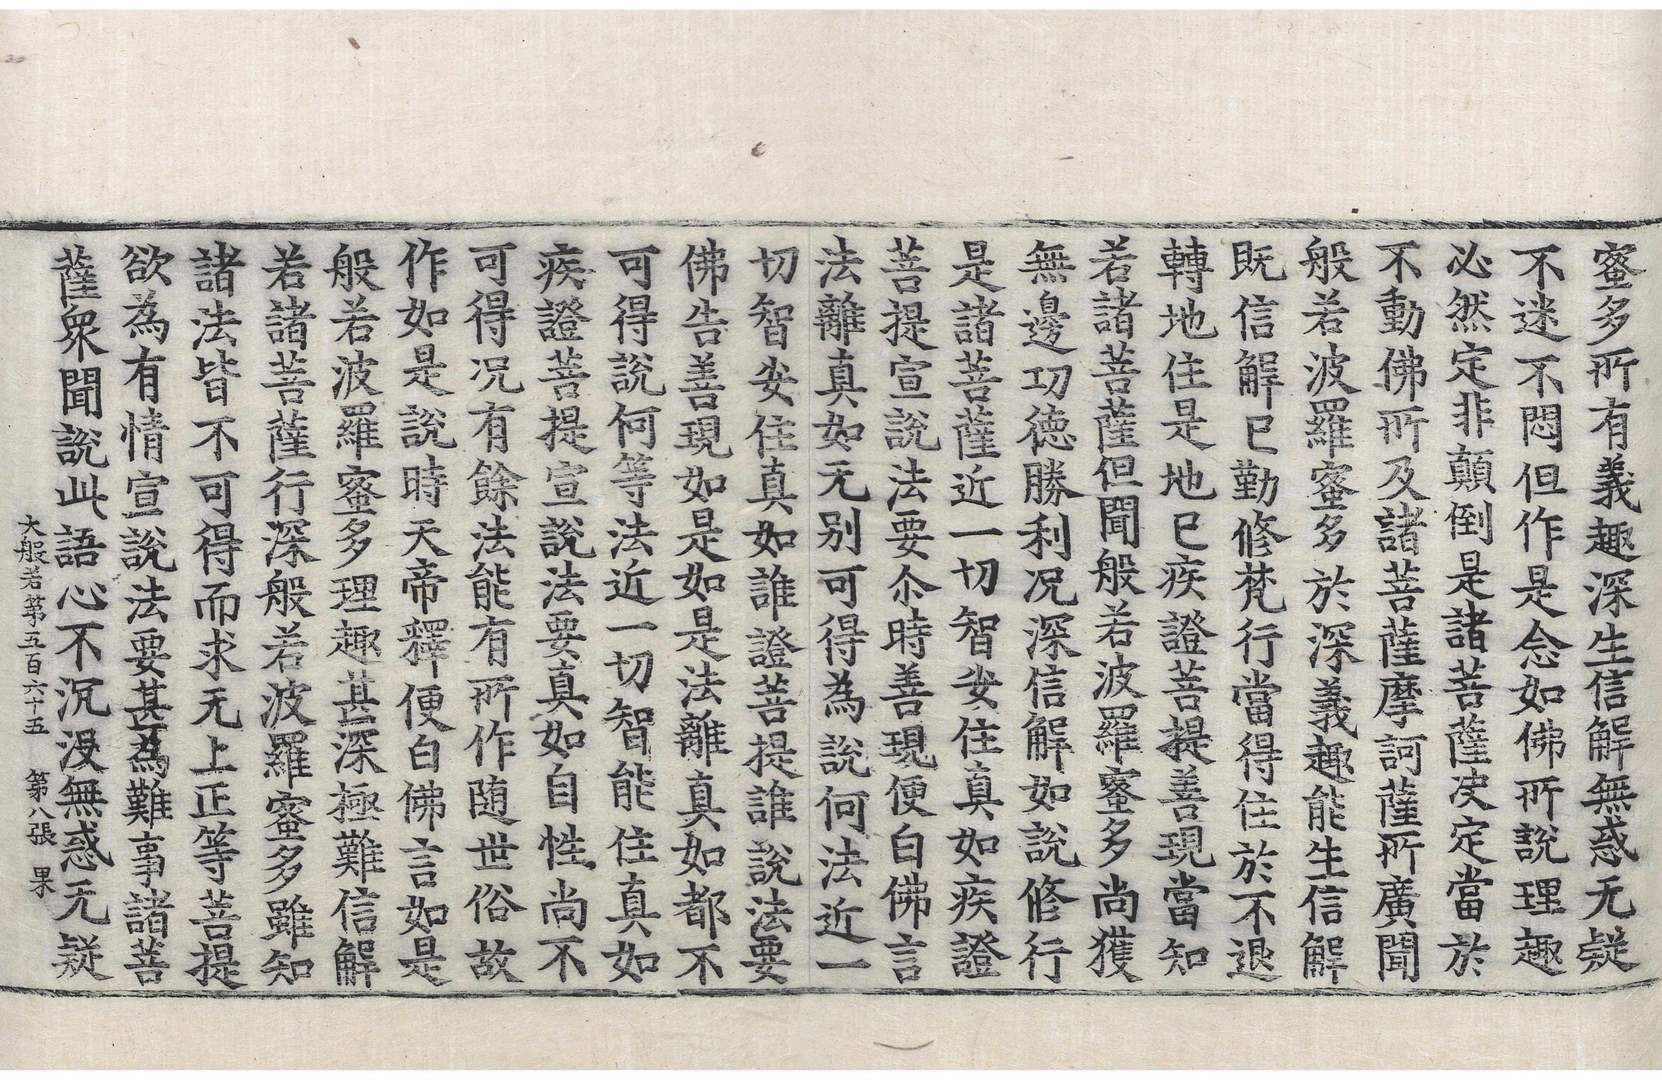 蜜多所有義趣深生信解無惑无疑
不迷不悶但作是念如佛所說理趣
必然定非顛倒是諸菩薩决定當於
不動佛所及諸菩薩摩訶薩所廣聞
般若波羅蜜多於深義趣能生信解
既信解已勤修梵行當得住於不退
轉地住是地已疾證菩提善現當知
若諸菩薩但聞般若波羅蜜多尚獲
無邊功德勝利况深信解如說修行
是諸菩薩近一切智安住真如疾證
菩提宣說法要尒時善現便白佛言
法離真如无別可得為說何法近一
切智安住真如誰證菩提誰說法要
佛告善現如是如是法離真如都不
可得說何等法近一切智能住真如
疾證菩提宣說法要真如自性尚不
可得况有餘法能有所作随世俗故
作如是說時天帝釋便白佛言如是
般若波羅蜜多理趣甚深極難信解
若諸菩薩行深般若波羅蜜多雖知
諸法皆不可得而求无上正等菩提
欲為有情宣說法要甚為難事諸菩
薩衆聞說此語心不沉没無惑无疑
大般若第五百六十五 第八張 果